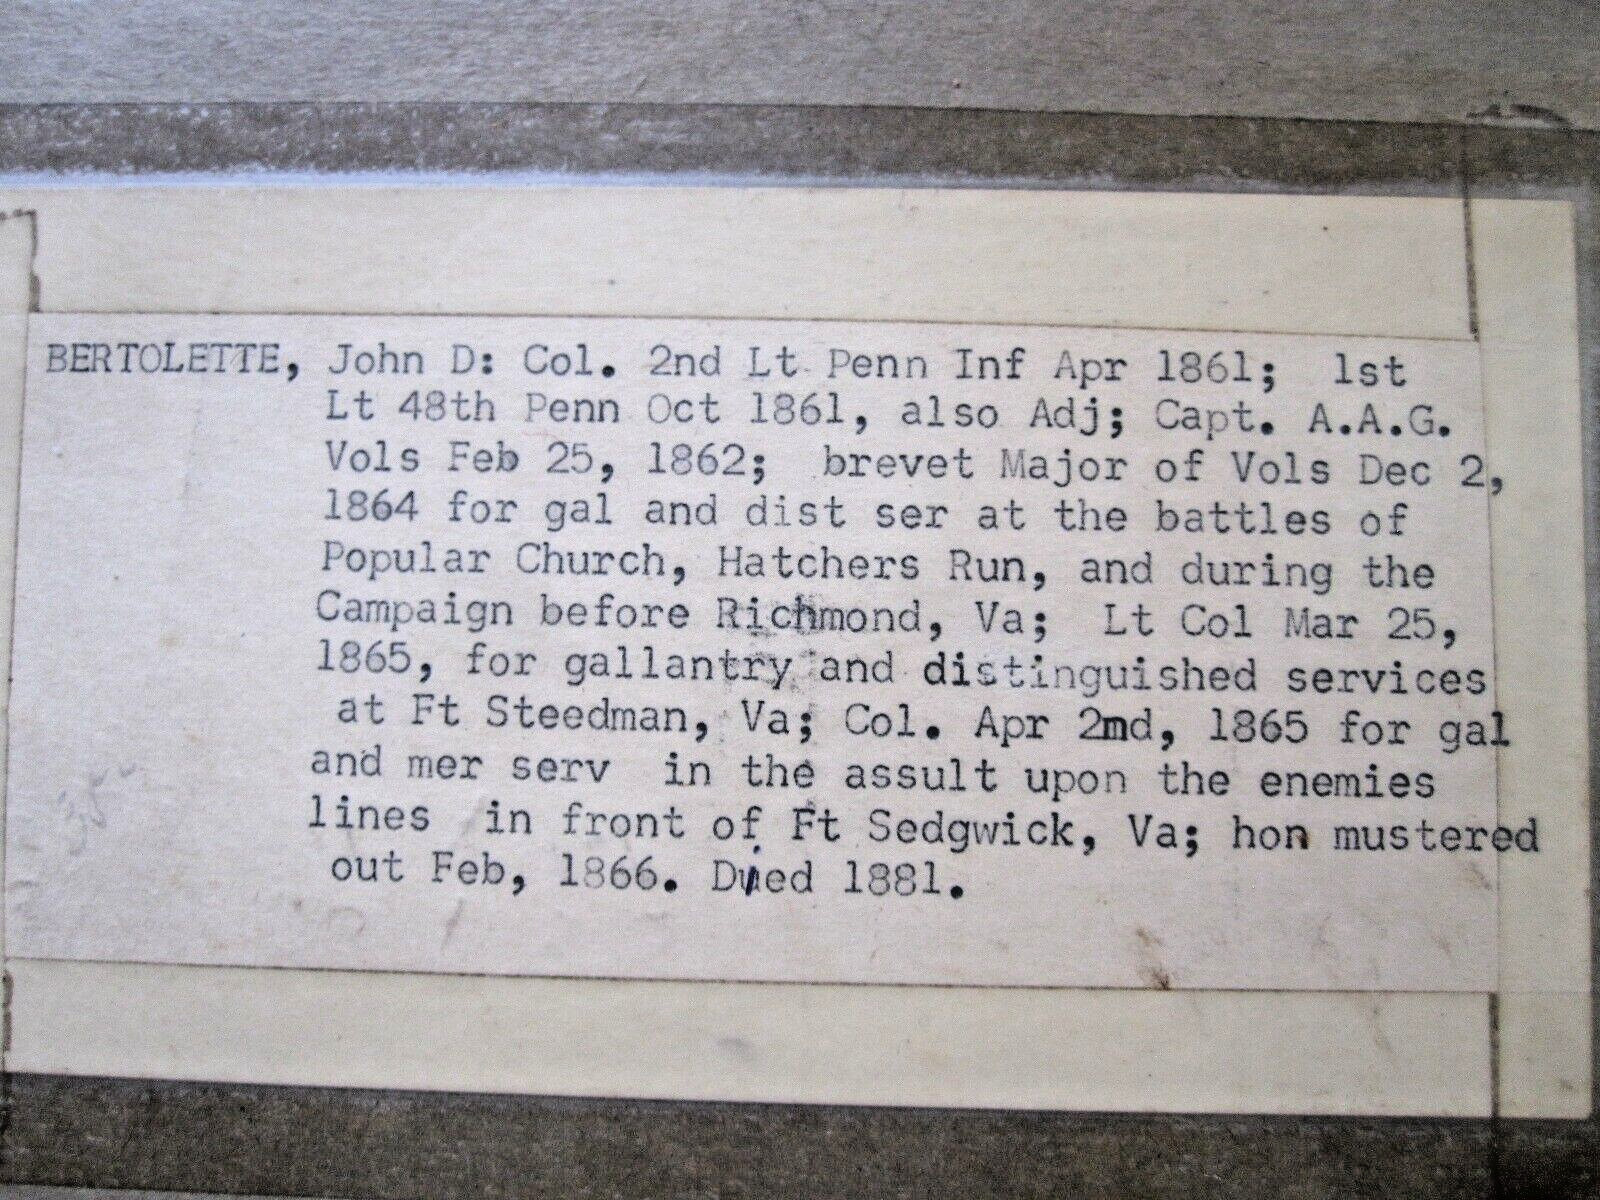 BERTOLETTE, John D: Col. 2nd Lt Penn Inf Apr 1861; 1st
Lt 48th Penn Oct 1861, also Adj; Capt. A.A.G.
Vols Feb 25, 1862; brevet Major of Vols Dec 2,
1864 for gal and dist ser at the battles of
Popular Church, Hatchers Run, and during the
Campaign before Richmond, Va; Lt Col Mar 25,
1865, for gallantry and distinguished services
at Ft Steedman, Va; Col. Apr 2nd, 1865 for gal
and mer serv in the assult upon the enemies
lines in front of Ft Sedgwick, Va; hon mustered
out Feb, 1866. Died 1881.